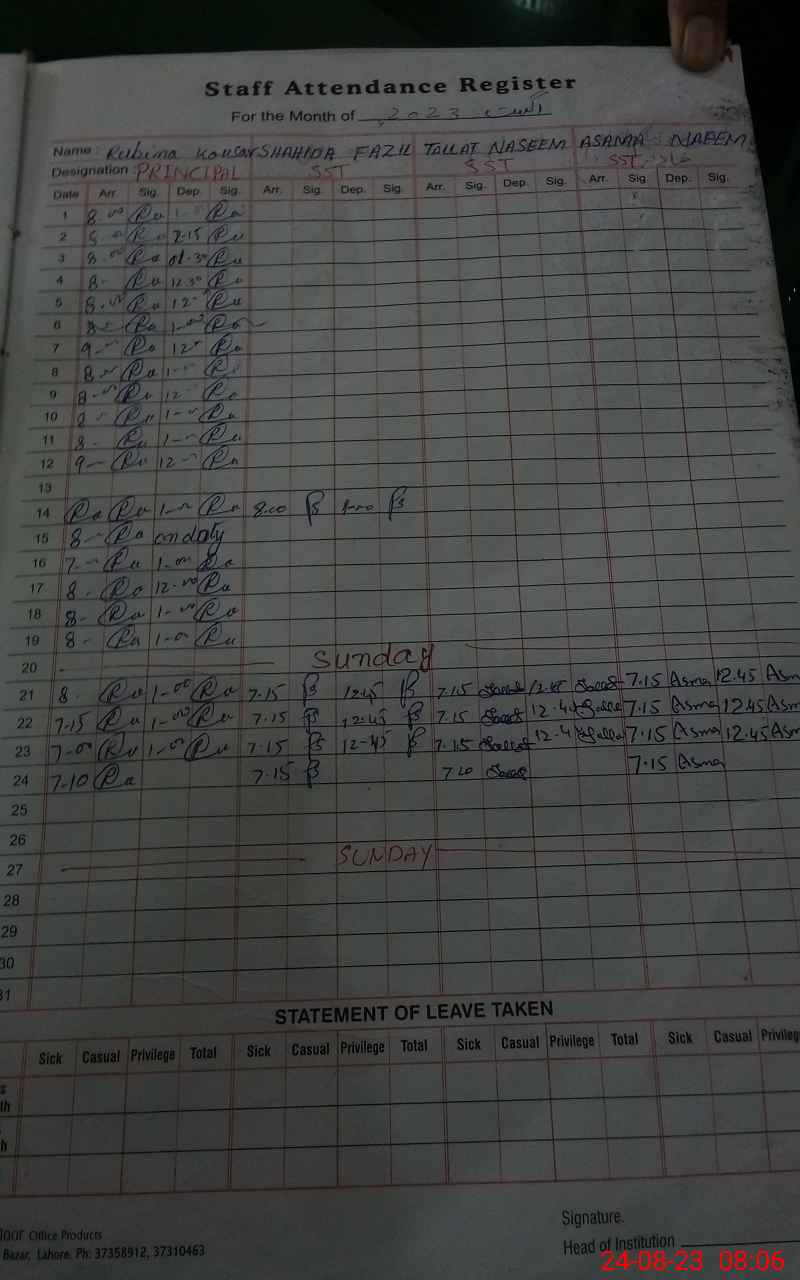 Staff Attendance Register
For the Month of اگست 2023
Name : Rubina Kousar SHAHIDA FAZIL TALLAT NASEEM ASANAA NAEEM
Designation PRINCIPAL SST SST SST
Date Arr. Sig. Dep. Sig. Arr. Sig. Dep. Sig. Arr. Sig. Dep. Sig. Arr. Sig. Dep. Sig.
1 8.00 Ru 1-00 Ru
2 Ru Ru
3 8.00 Ru 01.30 Ru
4 8- Ru 12.30 Ru
5 8.00 Ru 12- Ru
6 8- Ru 1-00 Ru
7 9- Ru 12- Ru
8 8- Ru 1- Ru
9 8-00 Ru 12- Ru
10 8- Ru 1- Ru
11 8- Ru 1- Ru
12 9- Ru 12- Ru
13
14 Ru Ru 1- Ru 8.00 1-00
15 8- Ru on duty
16 7- Ru 1-00 Ru
17 8. Ru 12-00 Ru
18 8- Ru 1-00 Ru
19 8- Ru 1-0 Ru
20 Sunday
21 8. Ru 1-00 Ru 7.15 12.45 7.15 12.45 7.15 Asma 12.45 Asm
22 7.15 Ru 1-00 Ru 7.15 12.45 7.15 12.4 7.15 Asma 12.45 Asm
23 7-00 Ru 1-00 Ru 7.15 12-45 7.15 12.4 7.15 Asma 12.45 Asm
24 7-10 Ru 7.15 7.20 7.15 Asma
25
26
27 SUNDAY
28
29
30
31
STATEMENT OF LEAVE TAKEN
Sick Casual Privilege Total Sick Casual Privilege Total Sick Casual Privilege Total Sick Casual Privileg
s
th
h
Signature.
Head of Institution
Office Products
Bazar, Lahore. Ph: 37358912, 37310463
24-08-23 08:06